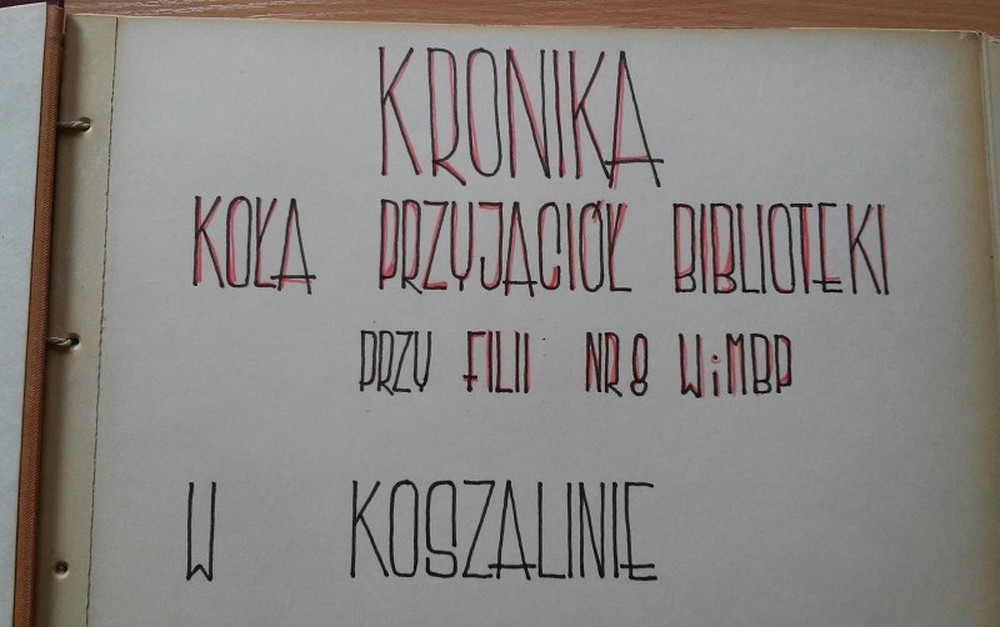 KRONIKA
KOŁA PRZYJACIÓŁ BIBLIOTEKI
PRZY FILII NR 8 WiMBP
W KOSZALINIE